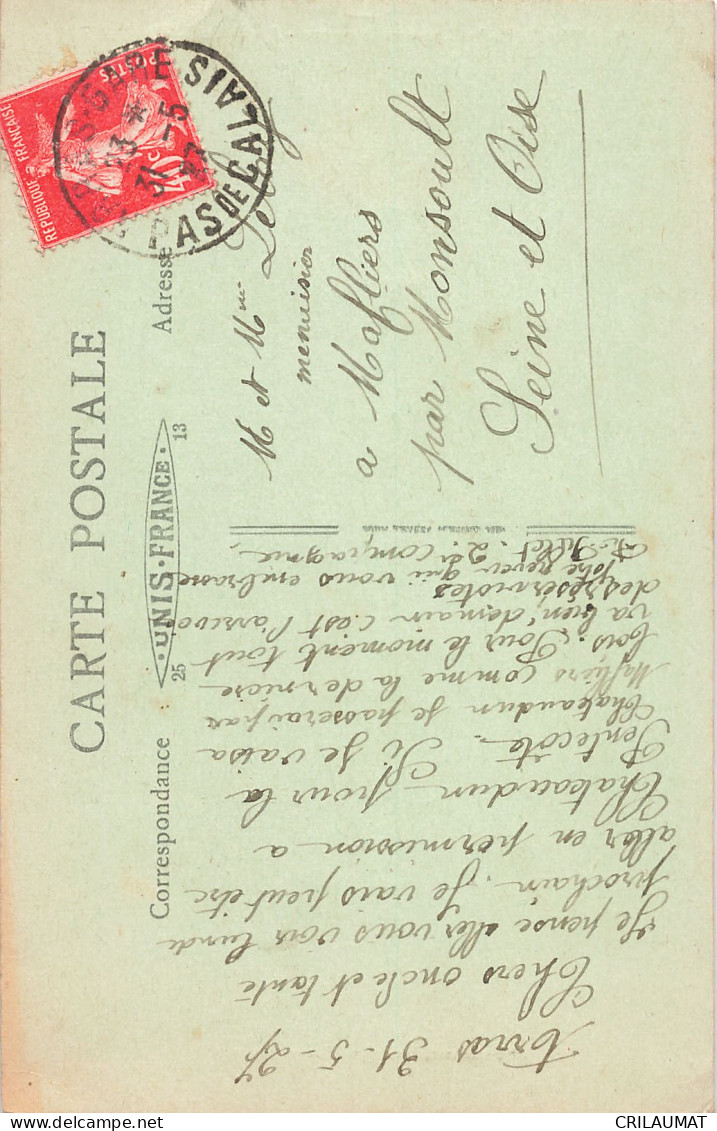 CARTE POSTALE
UNIS-FRANCE
25
13
Correspondance
Adresse
RÉPUBLIQUE FRANÇAISE
POSTES
40 c
GARE
PAS DE CALAIS
13 *
31 - 5
Arras 31-5-27
Chers oncle et tante
Je pense aller vous voir lundi
prochain. Je vais peut être
aller en permission a
Chateaudun pour la
Pentecôte. Si je vais a
Chateaudun je passerai par
Maffliers comme la derniere
fois. Pour le moment tout
va bien, demain c'est l'arrivée
des réservistes
Votre neveu qui vous embrasse
compagnie
M et Mme
menuisier
a Maffliers
par Monsoult
Seine et Oise
CRILAUMAT